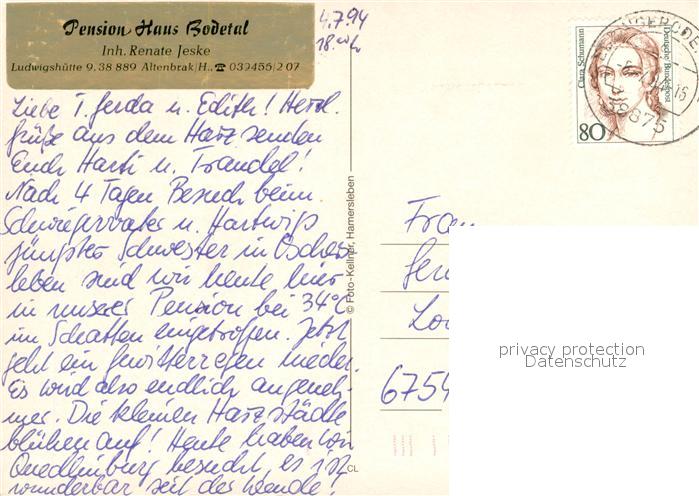 Pension Haus Bodetal
Inh. Renate Jeske
Ludwigshütte 9. 38 889 Altenbrak/H. ☎ 039455/2 07
4.7.94
18.00 h
Liebe T. Gerda u. Edith! Herzl.
Grüße aus dem Harz senden
Euch Harti u. Traudel!
Nach 4 Tagen Besuch beim
Schwiegervater u. Hartwigs
jüngster Schwester in Oschers-
leben sind wir heute hier
in unserer Pension bei 34°C
im Schatten eingetroffen. Jetzt
geht ein Gewitterregen nieder.
Es wird also endlich angeneh-
mer. Die kleinen Harzstädte
blühen auf! Heute haben wir
Quedlinburg besucht, es ist
wunderbar seit der Wende!
© Foto-Kellner, Hamersleben
CL
Clara Schumann
Deutsche Bundespost
80
38875
Frau
Ger
6754
privacy protection
Datenschutz